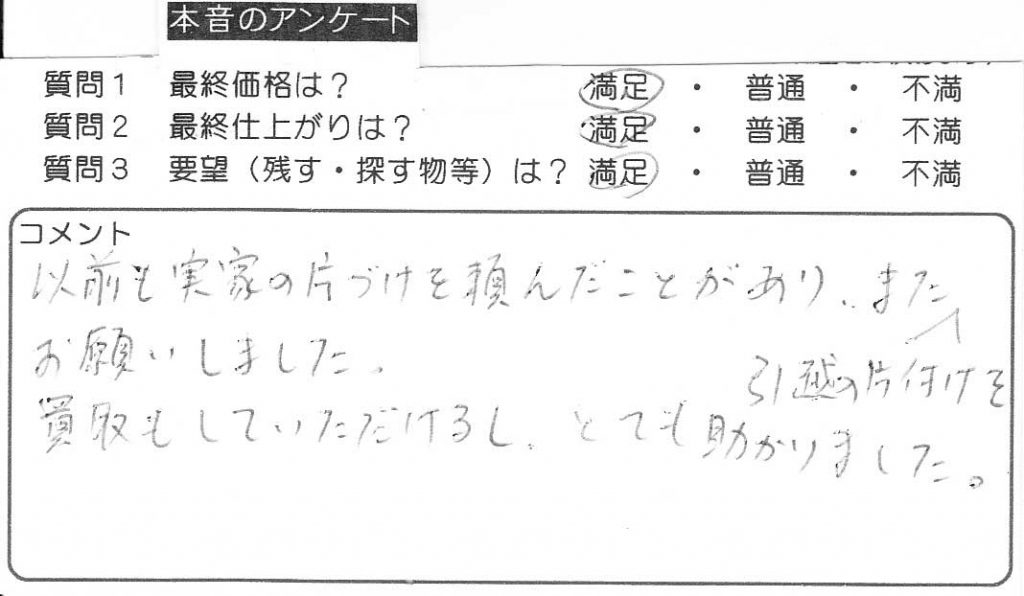 本音のアンケート
質問1 最終価格は? 満足 ・ 普通 ・ 不満
質問2 最終仕上がりは? 満足 ・ 普通 ・ 不満
質問3 要望(残す・探す物等)は? 満足 ・ 普通 ・ 不満
コメント
以前も実家の片づけを頼んだことがあり、また
引越の片付けを
お願いしました。
買取もしていただけるし、とても助かりました。